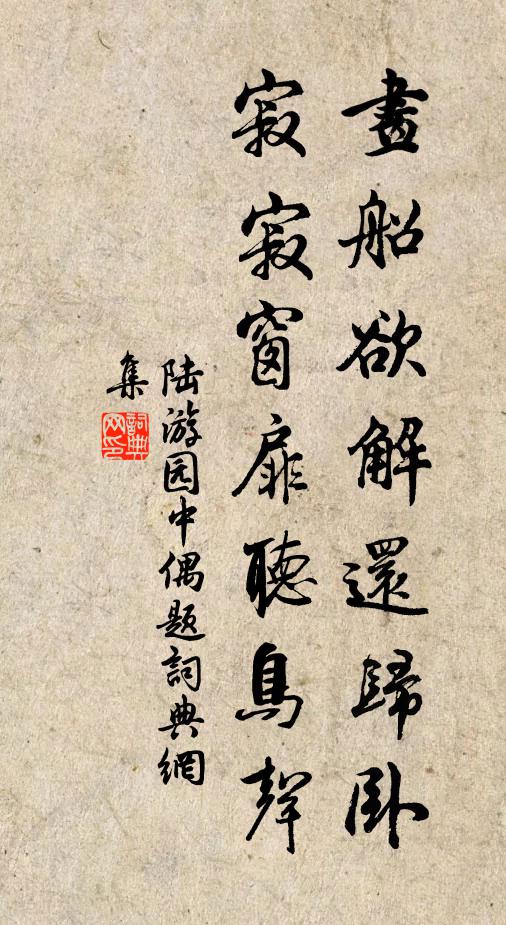 畫船欲解還歸臥
寂寂窗扉聽鳥聲
陆游园中偶题詞典網
集
詞典網印